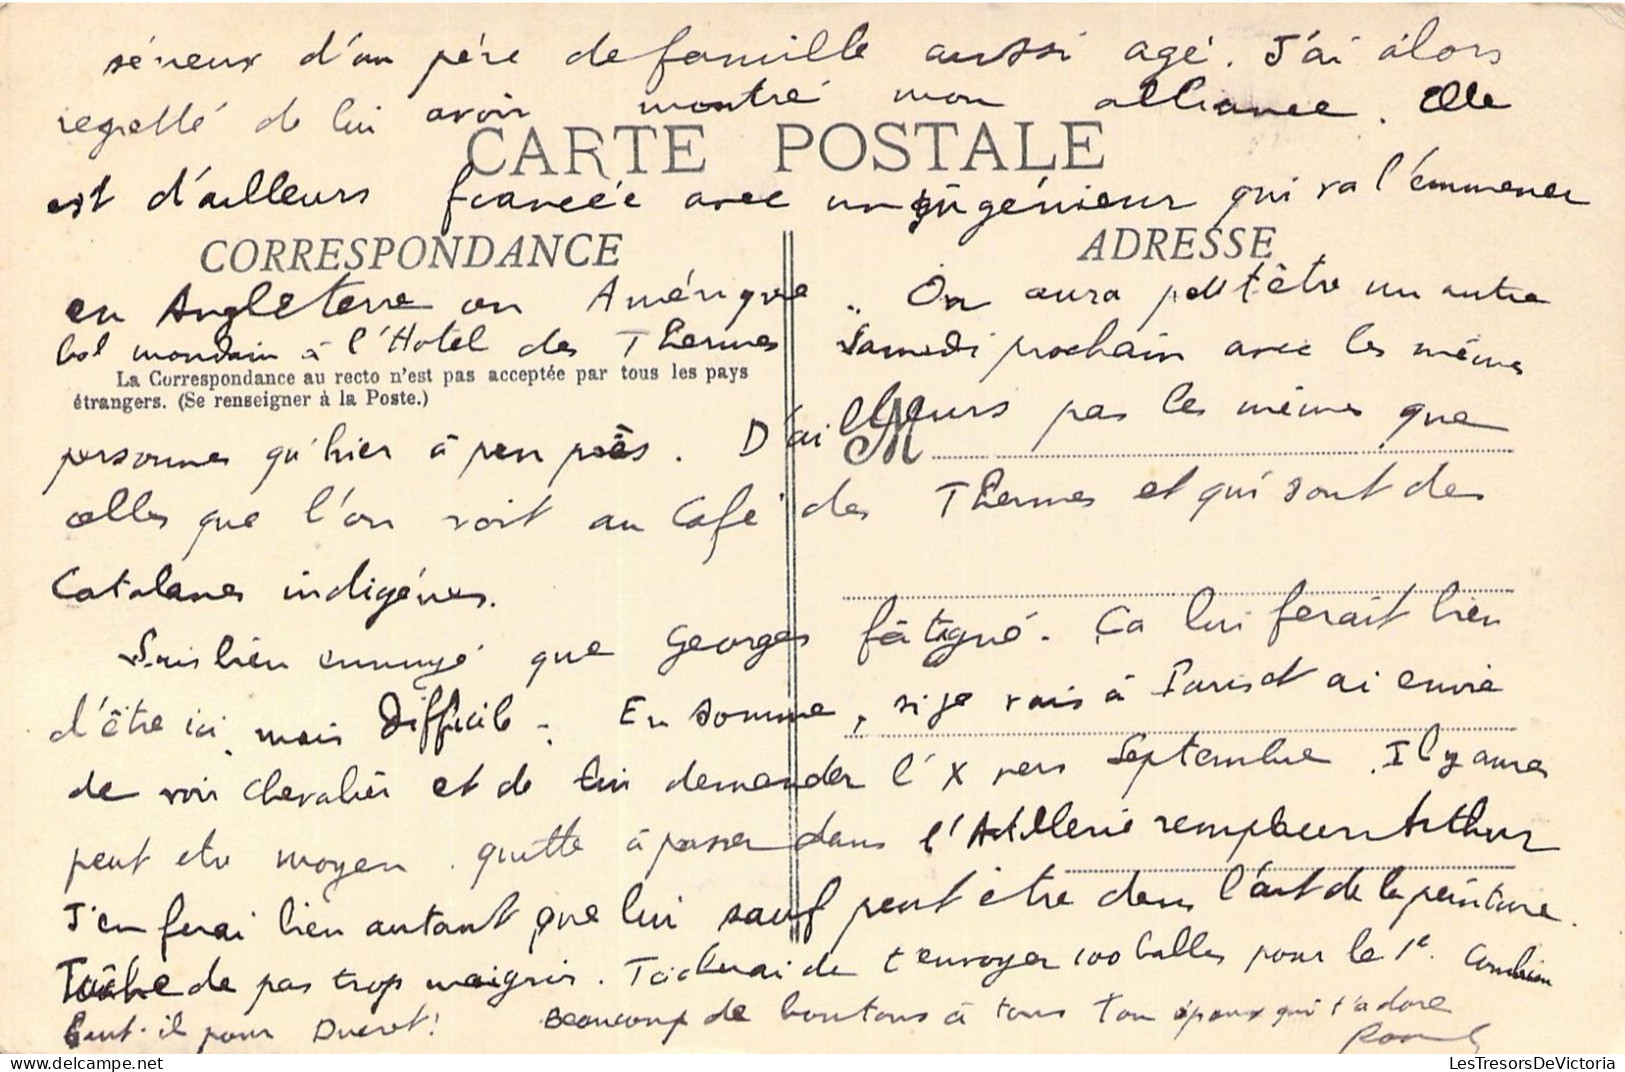 sérieux d'un père de famille aussi agé. J'ai alors
regretté de lui avoir montré mon alliance. Elle
CARTE POSTALE
est d'ailleurs fiancée avec un ingénieur qui va l'emmener
CORRESPONDANCE
ADRESSE
en Angleterre ou Amérique. On aura peut être un autre
bal mondain à l'Hotel des Thermes Samedi prochain avec les mêmes
La Correspondance au recto n'est pas acceptée par tous les pays
étrangers. (Se renseigner à la Poste.)
M
personnes qu'hier à peu près. D'ailleurs pas les mêmes que
celles que l'on voit au Café des Thermes et qui sont des
Catalanes indigénes.
Suis bien ennuyé que Georges fatigué. Ça lui ferait bien
d'être ici mais difficile. En somme, si je vais à Paris et ai envie
de voir Chevalier et de lui demander l'X vers Septembre. Il y aura
peut etre moyen quitte à passer dans l'Artillerie remplacer Arthur
J'en ferai bien autant que lui sauf peut être dans l'art de la peinture.
Tâche de pas trop maigrir. Tacherai de t'envoyer 100 balles pour le 1e. Combien
faut-il pour Ducrot! Beaucoup de boutons à tous Ton époux qui t'adore
LesTresorsDeVictoria